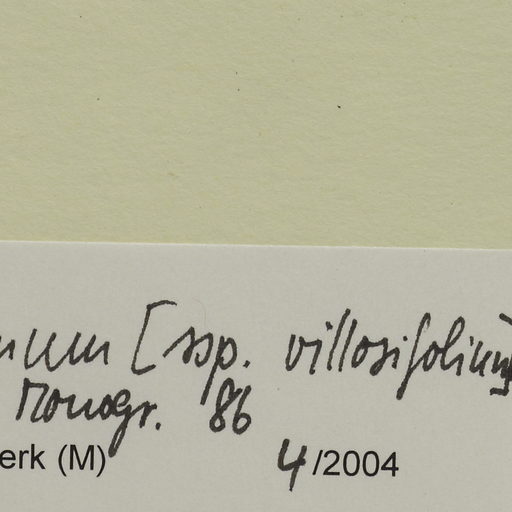 num [ssp. villosifolium]
Monogr. '86
erk (M) 4/2004